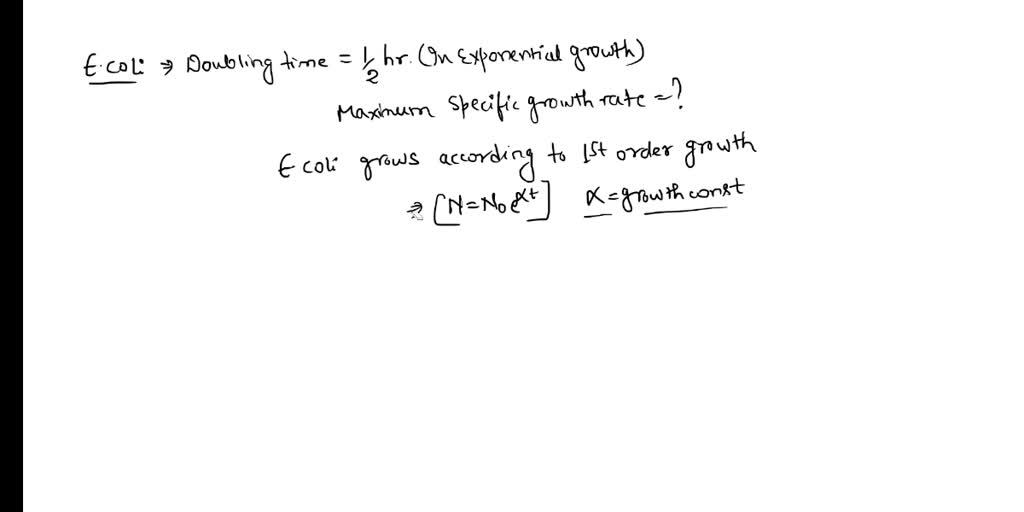 E.coli ⇒ Doubling time = 1/2 hr. (On Exponential growth)
Maximum specific growth rate = ?
E coli grows according to 1st order growth
⇒ [N = N₀e^αt] α = growth const